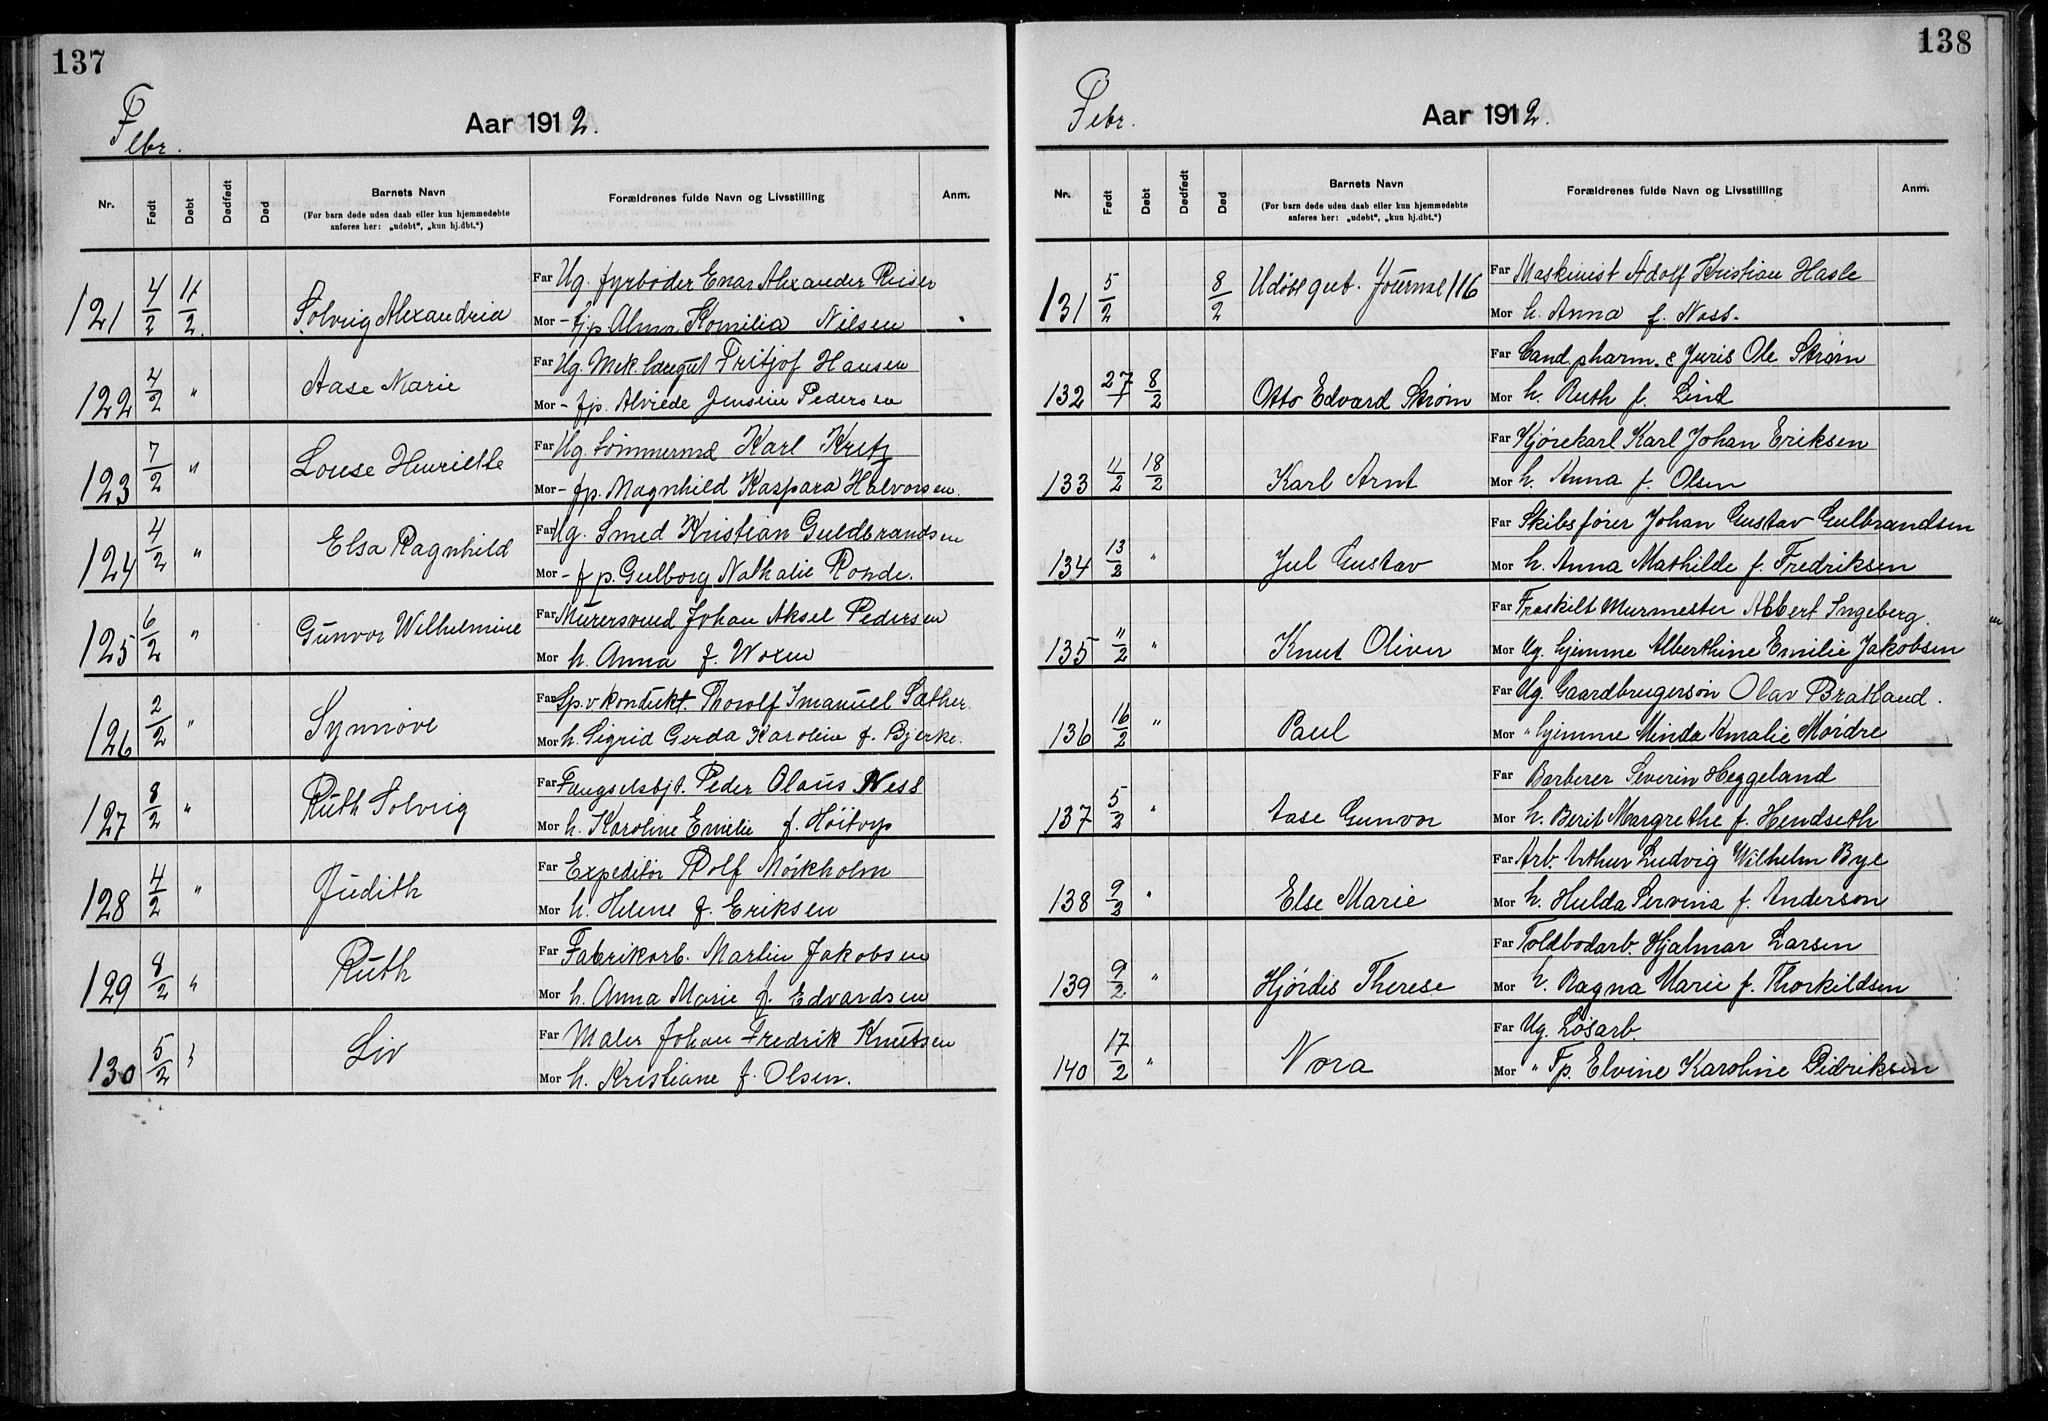 137
Febr.
Aar 1912.
Nr. Født Døbt Dødfødt Død Barnets Navn Forældrenes fulde Navn og Livsstilling Anm.
(For barn døde uden daab eller kun hjemmedøbte
anføres her: „udøbt", „kun hj.dbt.")
Far Ug. fyrbøder Enar Alexander Riiser
121 4/2 11/2. Solveig Alexandria Mor - fp. Alma Komilia Nilsen
Far Ug. Mek. Fritjof Hansen
122 4/2 " Aase Marie Mor - fp. Alvilde Jensine Pedersen
Far Ug. Tømmermd Karl Kritz
123 7/2 " Louse Henriette Mor - fp. Magnhild Kaspara Halvorsen.
Far Ug. Smed Kristian Guldbrandsen
124 4/2 " Elsa Ragnhild Mor - fp. Gulborg Nathalie Ronde.
Far Murersvend Johan Aksel Pedersen
125 6/2 " Gunvor Wilhelmine Mor h. Anna f. Woxen
Far Sp.v. kondukt Thorolf Imanuel Sæther.
126 2/2 " Synnöve Mor h. Sigrid Gerda Karoline f. Bjerke.
Far Fængselsbtj. Peder Olaus Ness
127 8/2 " Ruth Solveig Mor h. Karoline Emelie f. Höitvp
Far Expeditör Rolf Mörkholm
128 4/2 " Judith Mor h. Helene f. Eriksen
Far Fabrikarb. Martin Jakobsen
129 8/2 " Ruth Mor h. Anna Marie f. Edvardsen
Far Maler Johan Fredrik Knutsen
130 5/2 " Liv Mor h. Kristiane f. Olsen.
138
Febr.
Aar 1912.
Nr. Født Døbt Dødfødt Død Barnets Navn Forældrenes fulde Navn og Livsstilling Anm.
(For barn døde uden daab eller kun hjemmedøbte
anføres her: „udøbt", „kun hj.dbt.")
Far Maskinist Adolf Kristian Hasle
131 5/2 8/2 Udöbt gut. Journal 116 Mor h. Anna f. Noss.
Far Cand. pharm. & Juris Ole Strøm
132 27/1 8/2 Otto Edvard Strøm Mor h. Ruth f. Lind
Far Kjørekarl Karl Johan Eriksen
133 4/2 18/2 Karl Arnt Mor h. Anna f. Olsen
Far Skibsfører Johan Gustav Gulbrandsen
134 13/2 " Jul Gustav Mor h. Anna Mathilde f. Fredriksen
Far Fraskilt Murmester Albert Ingeberg.
135 11/2 " Knut Oliver Mor Ug. hjemme Alberthine Emilie Jakobsen
Far Ug. Gaardbrugersön Olav Bratland.
136 16/2 " Paul Mor " hjemme Minda Amalie Mørdre
Far Barberer Severin Heggeland
137 5/2 " Aase Gunvor Mor h. Berit Margrethe f. Hendseth
Far Arb. Arthur Ludvig Wilhelm Bye
138 9/2 " Else Marie Mor h. Hulda Servina f. Anderson
Far Toldbodarb. Hjalmar Larsen
139 9/2 " Hjørdis Therese Mor h. Ragna Marie f. Thorkildsen
Far Ug. Løsarb.
140 17/2 " Nora Mor " Fp. Elvine Karoline Didriksen